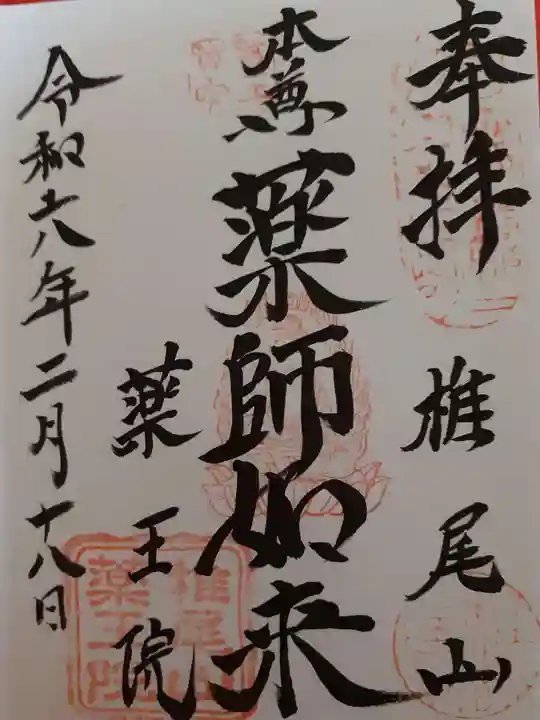 奉拝
椎尾山
本尊
薬師如来
薬王院
令和六年二月十八日
椎尾山
薬王院